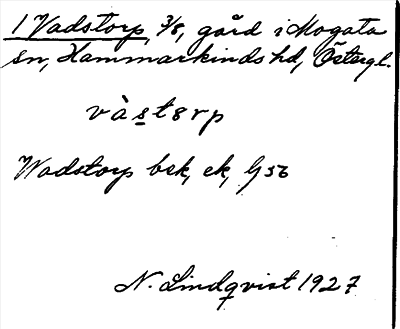 1 Vadstorp, 3/8, gård i Mogata
sn, Hammarkinds hd, Östergl.
vàstərp
Wadstorp bsk, ek, G 56
N. Lindqvist 1927